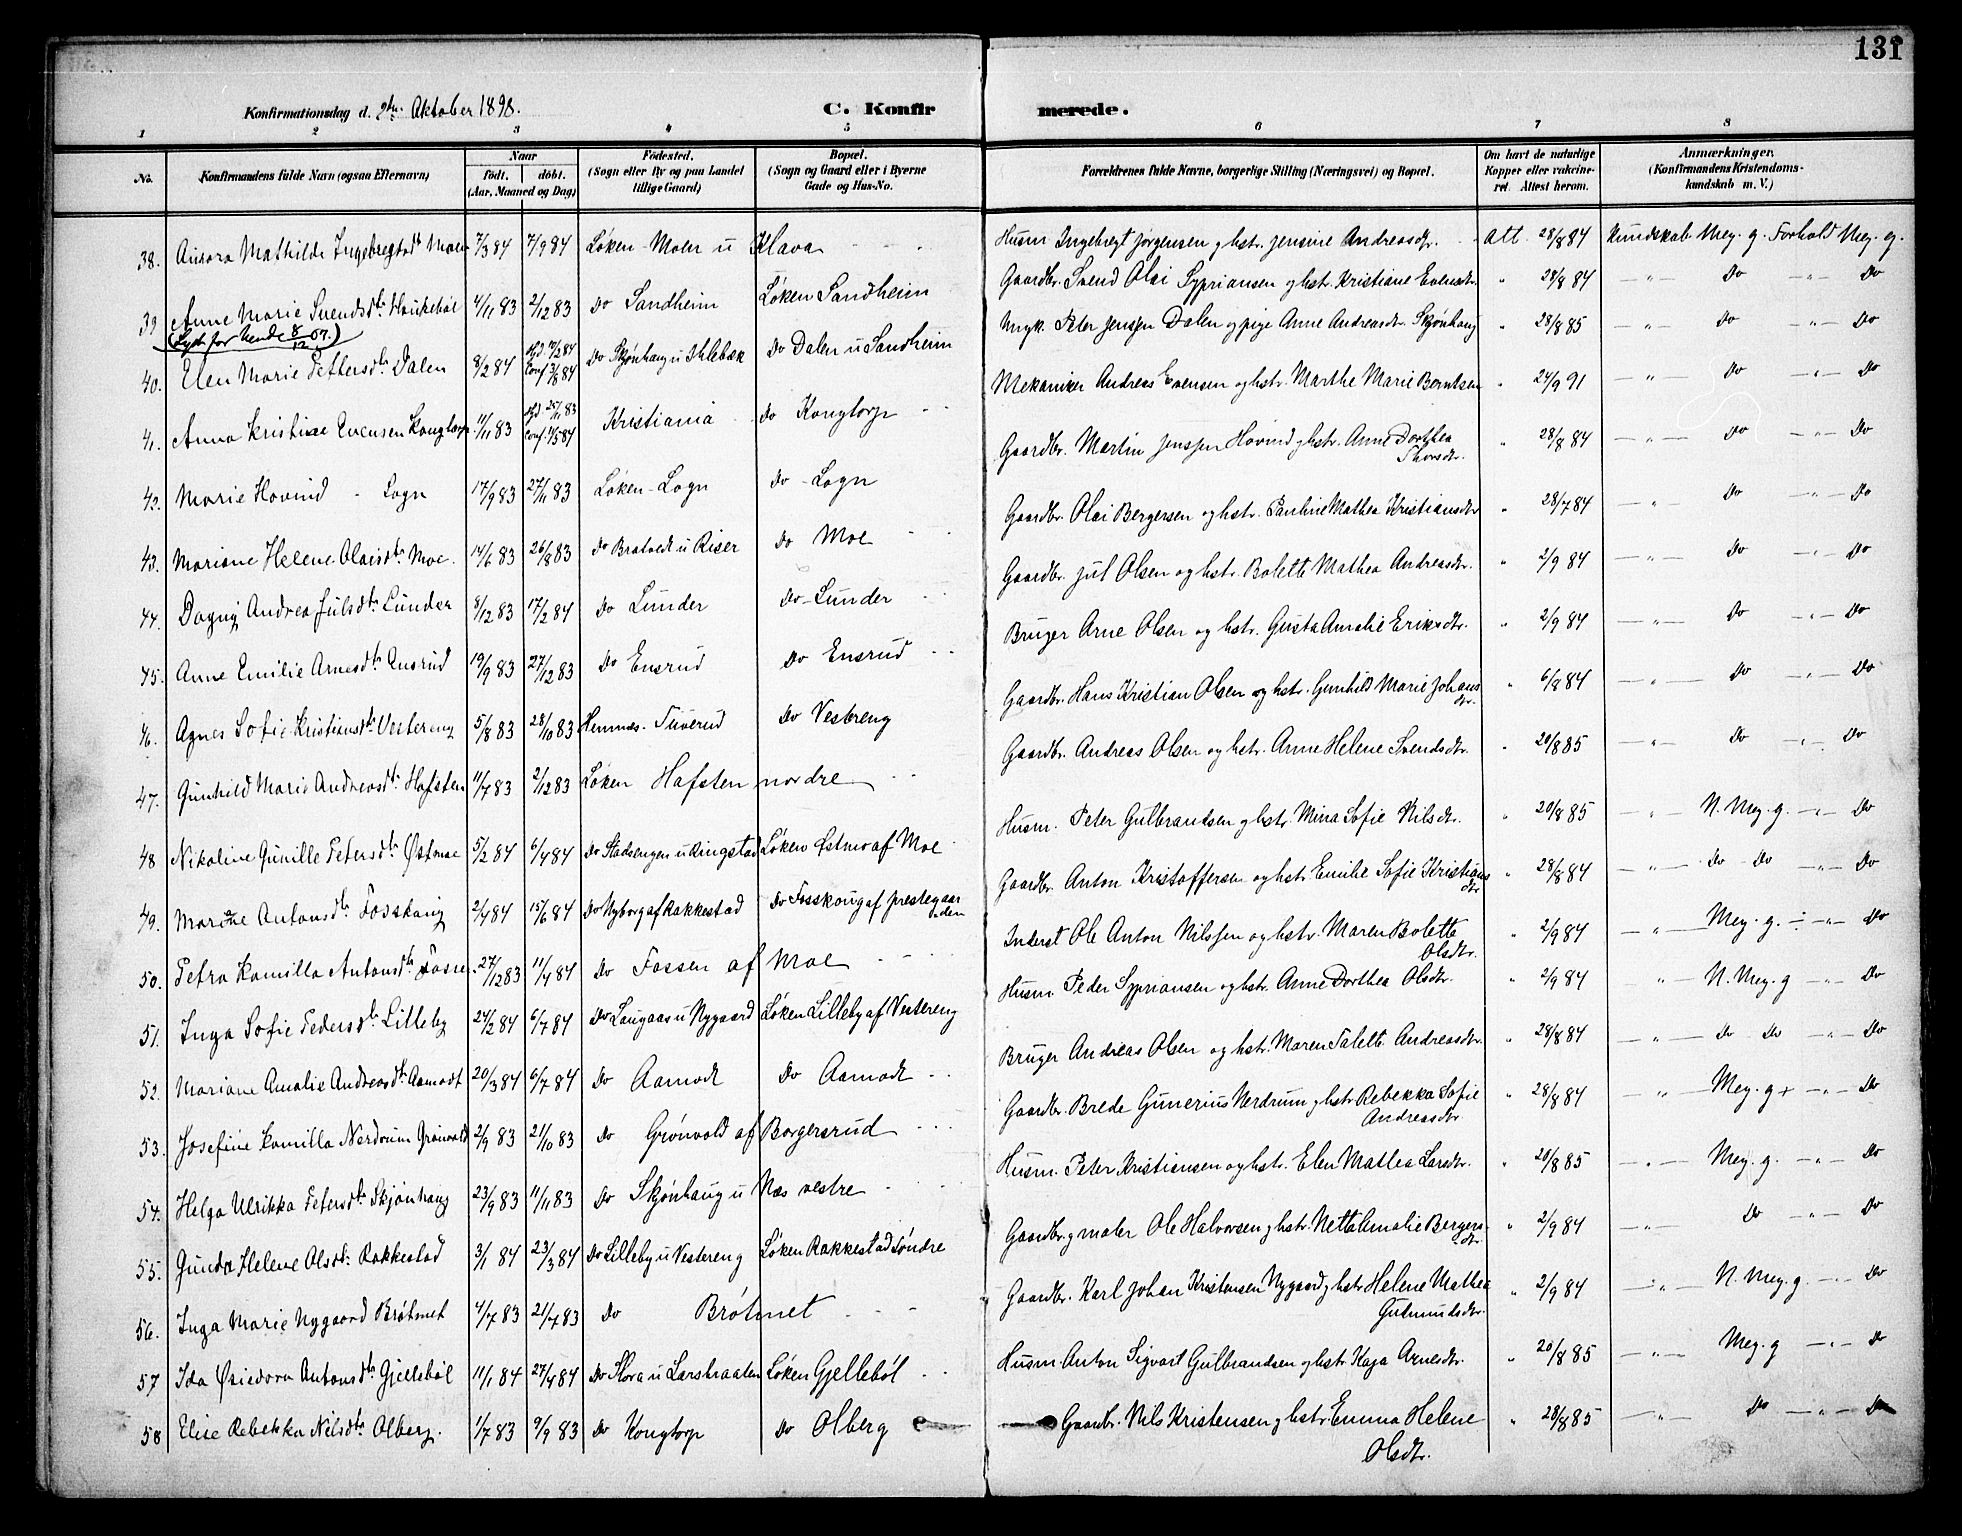 131
Konfirmationsdag d. 2den Oktober 1898. C. Konfirmerede.
1 2 3 4 5 6 7 8
No. Konfirmandens fulde Navn (ogsaa Efternavn) Naar født. døbt. (Aar, Maaned og Dag) Fødested. (Sogn eller By og paa Landet tillige Gaard) Bopæl. (Sogn og Gaard eller i Byerne Gade og Hus-No. Forældrenes fulde Navne, borgerlige Stilling (Næringsvei) og Bopæl. Om havt de naturlige Kopper eller vaccineret. Attest herom. Anmærkninger. (Konfirmandens Kristendomskundskab m. V.)
38. Aurora Mathilde Ingebregtsdtr Moen 7/3 84 7/9 84 Løken - Moen u Klava Husm Ingebregt Jørgensen g hstr. Jensine Andreasdtr. Att. 28/8 84 Kundskab Meg. g. Forhold Meg. g.
39 Anne Marie Svendsdtr. Haukebøl 4/11 83 2/12 83 Do Sandheim Løken Sandheim Gaardbr. Svend Olai Sypriansen g hstr. Kristiane Evensdtr. " 28/8 84 — " — Do — " — Do
(Lyst for hende 8/12 07.)
40. Elen Marie Pettersdtr Dalen 8/2 84 hfd 17/2 84 Conf 3/8 84 Do Skjønhaug u Ihlebæk Do Dalen u Sandheim Ungk. Peter Jenssen Dalen og pige Anne Andreasdtr Skjønhaug " 28/8 85 — " — Do — " — Do
41. Anna Kristine Evensen Kongtorp 11/11 83 hfd 25/11 83 Conf. 1/5 84 Kristiania Do Kongtorp Mekaniker Andreas Evensen og hstr. Marthe Marie Berntsen " 24/9 91 — " — Do — " — Do
42. Marie Hovind - Logn 17/9 83 27/11 83 Løken - Logn Do - Logn Gaardbr. Martin Jenssen Hovind g hstr. Anne Dorthea Thorsdtr. " 28/8 84 — " — Do — " — Do
43. Mariane Helene Olaisdtr Moe. 14/6 83 26/8 83 Do Bratvedt u Riser Do Moe Gaardbr. Olai Bergersen og hstr. Pauline Mathea Kristiansdtr " 28/7 84 — " — Do — " — Do
44. Dagny Andrea Julsdtr Lunder 8/12 83 17/2 84 Do Lunder Do - Lunder Gaardbr. Jul Olsen og hstr. Bolette Mathea Andreasdtr. " 2/9 84 — " — Do — " — Do
45. Anne Emilie Arnesdtr Ensrud 19/9 83 27/12 83 Do Ensrud Do Ensrud Bruger Arne Olsen og hstr. Gusta Amalie Eriksdtr. " 2/9 84 — " — Do — " — Do
46. Agnes Sofie Kristiansdtr Vestereng 5/8 83 28/10 83 Hemnes - Tuverud Do Vestreng Gaardbr. Hans Kristian Olsen og hstr. Gunhild Marie Johansdtr. " 6/8 84 — " — Do — " — Do
47. Gunhild Marie Andreasdtr. Hafsten 11/7 83 2/12 83 Løken Hafsten nordre Gaardbr. Andreas Olsen og hstr. Anne Helene Svendsdtr. " 20/8 85 — " — Do — " — Do
48 Nikoline Gunille Petersdtr Østmoe 5/2 84 6/4 84 Do Stadsengen u Ringstad Løken Østmo af Moe Husm. Peter Gulbrandsen g hstr. Mina Sofie Nilsdtr. " 20/8 85 — " — N. Meg. g. — " — Do
49. Marine Antonsdtr Fosskaug 2/4 84 15/6 84 Do Nyborg af Rakkestad Do Fosskoug af prestegaarden Gaardbr. Anton Kristoffersen og hstr Emilie Sofie Kristiansdtr " 28/8 84 — " — Do - Do — " — Do
50. Petra Kamilla Antonsdtr Fosse 27/12 83 11/4 84 Do Fossen af Moe Inderst Ole Anton Nilssen og hstr. Maren Bolette Olsdtr. " 2/9 84 — " — Meg. g. ÷ — " — Do
51. Inga Sofie Pedersdtr Lilleby 24/2 84 6/7 84 Do Laugaas u Nygaard Løken Lilleby af Vestereng Husm. Peder Syprianser og hstr. Anne Dorthea Olsdtr. " 2/9 84 " — N. Meg. g — " — Do
52. Mariane Amalie Andreasdtr Aamodt 20/3 84 6/7 84 Do Aamodt Do Aamodt Bruger Andreas Olsen og hstr. Maren Talette Andreasdtr. " 28/8 84 — " — Do Do — " — Do
53. Josefine Kamilla Nerdrum Grønvold 2/9 83 21/10 83 Do Grønvold af Borgersrud Gaardbr. Brede Gunerius Nerdrum g hstr Rebekka Sofie Andreasdtr " 28/8 84 — " — Meg. g + — " — Do
54. Helga Ulrikka Petersdtr Skjønhaug 23/9 83 11/11 83 Do Skjønhaug u Næs vestre Husm. Peter Kristiansen og hstr. Elen Mathea Larsdtr. " 20/8 85 — " — Meg. g. — " — Do
55. Gunda Helene Olsdtr. Rakkestad 3/1 84 23/3 84 Do Lilleby u Vestereng Løken Rakkestad søndre Gaardbr. g maler Ole Halvorsen g hstr. Netta Amalie Bergersdtr. " 2/9 84 — " — Do — " — Do
56. Inga Marie Nygaard Brøtmet 4/7 83 21/7 83 Do Brøtmet Gaardbr. Karl Johan Kristensen Nygaard g hstr Helene Mathea Gudmundsdtr. " 2/9 84 — " — N. Meg. g. — " — Do
57 Ida Øsiedora Antonsdtr Gjellebøl 11/1 84 27/4 84 Do Slora u Larsbraaten Løken Gjellebøl Husm. Anton Sigvart Gulbrandsen g hstr Kaja Arnesdtr. " 20/8 85 — " — Meg. g — " — Do
58 Elise Rebekka Nilsdtr Olberg. 1/7 83 9/9 83 Do Kongtorp Do Olberg Gaardbr. Nils Kristensen g hstr Emma Helene Olsdtr. " 28/8 85 — " — Do — " — Do